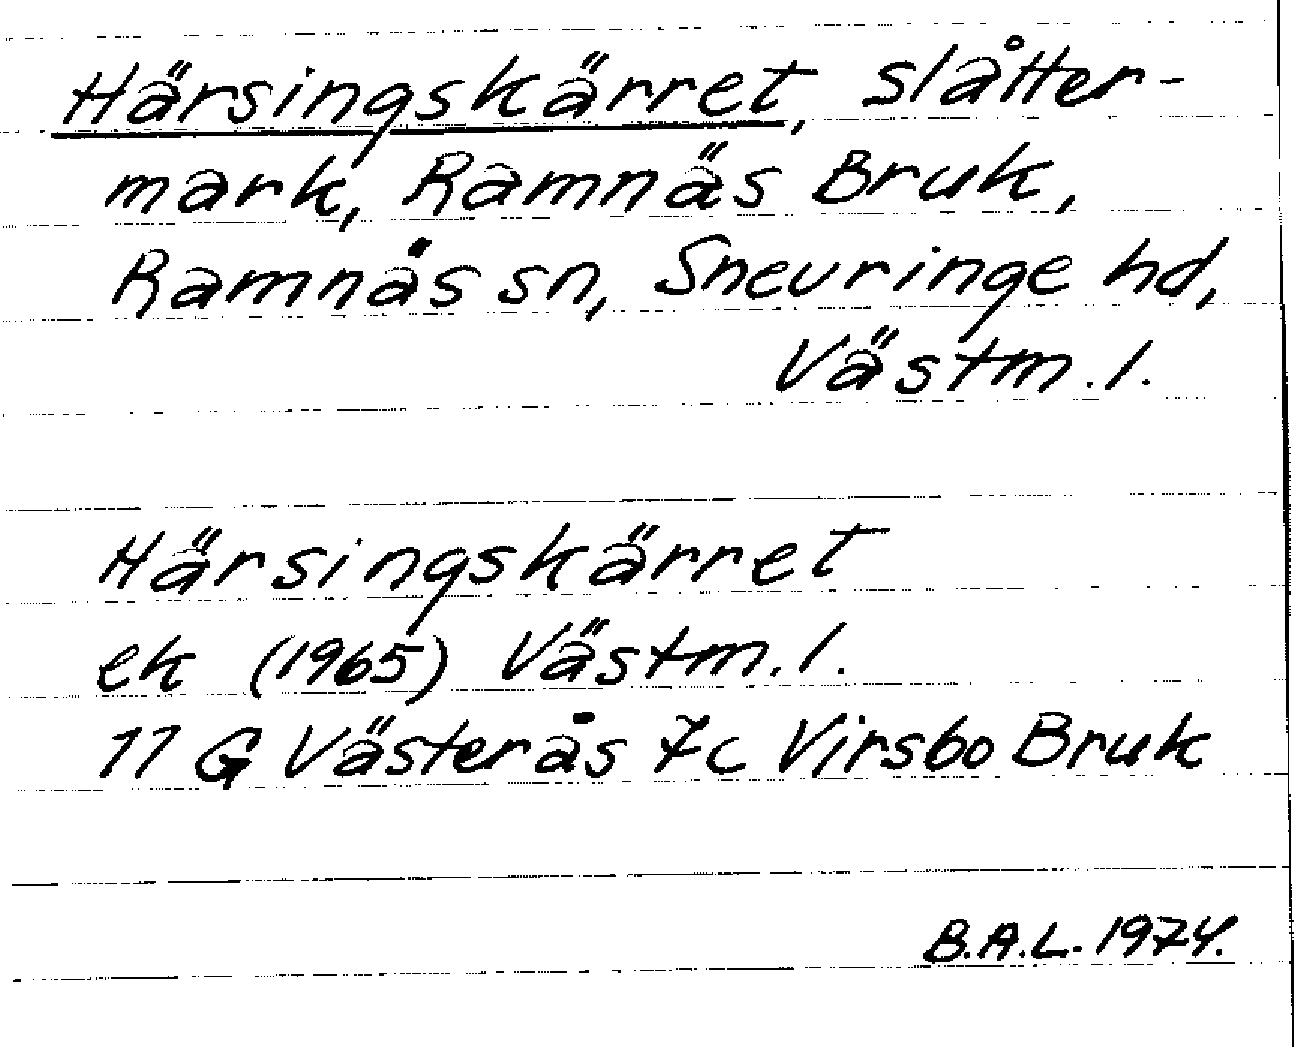 Härsingskärret, slåtter-
mark, Ramnäs Bruk,
Ramnäs sn, Snevringe hd,
Västm. l.
Härsingskärret
ek (1965) Västm. l.
11 G Västerås 7c Virsbo Bruk
B.A.L. 1974.